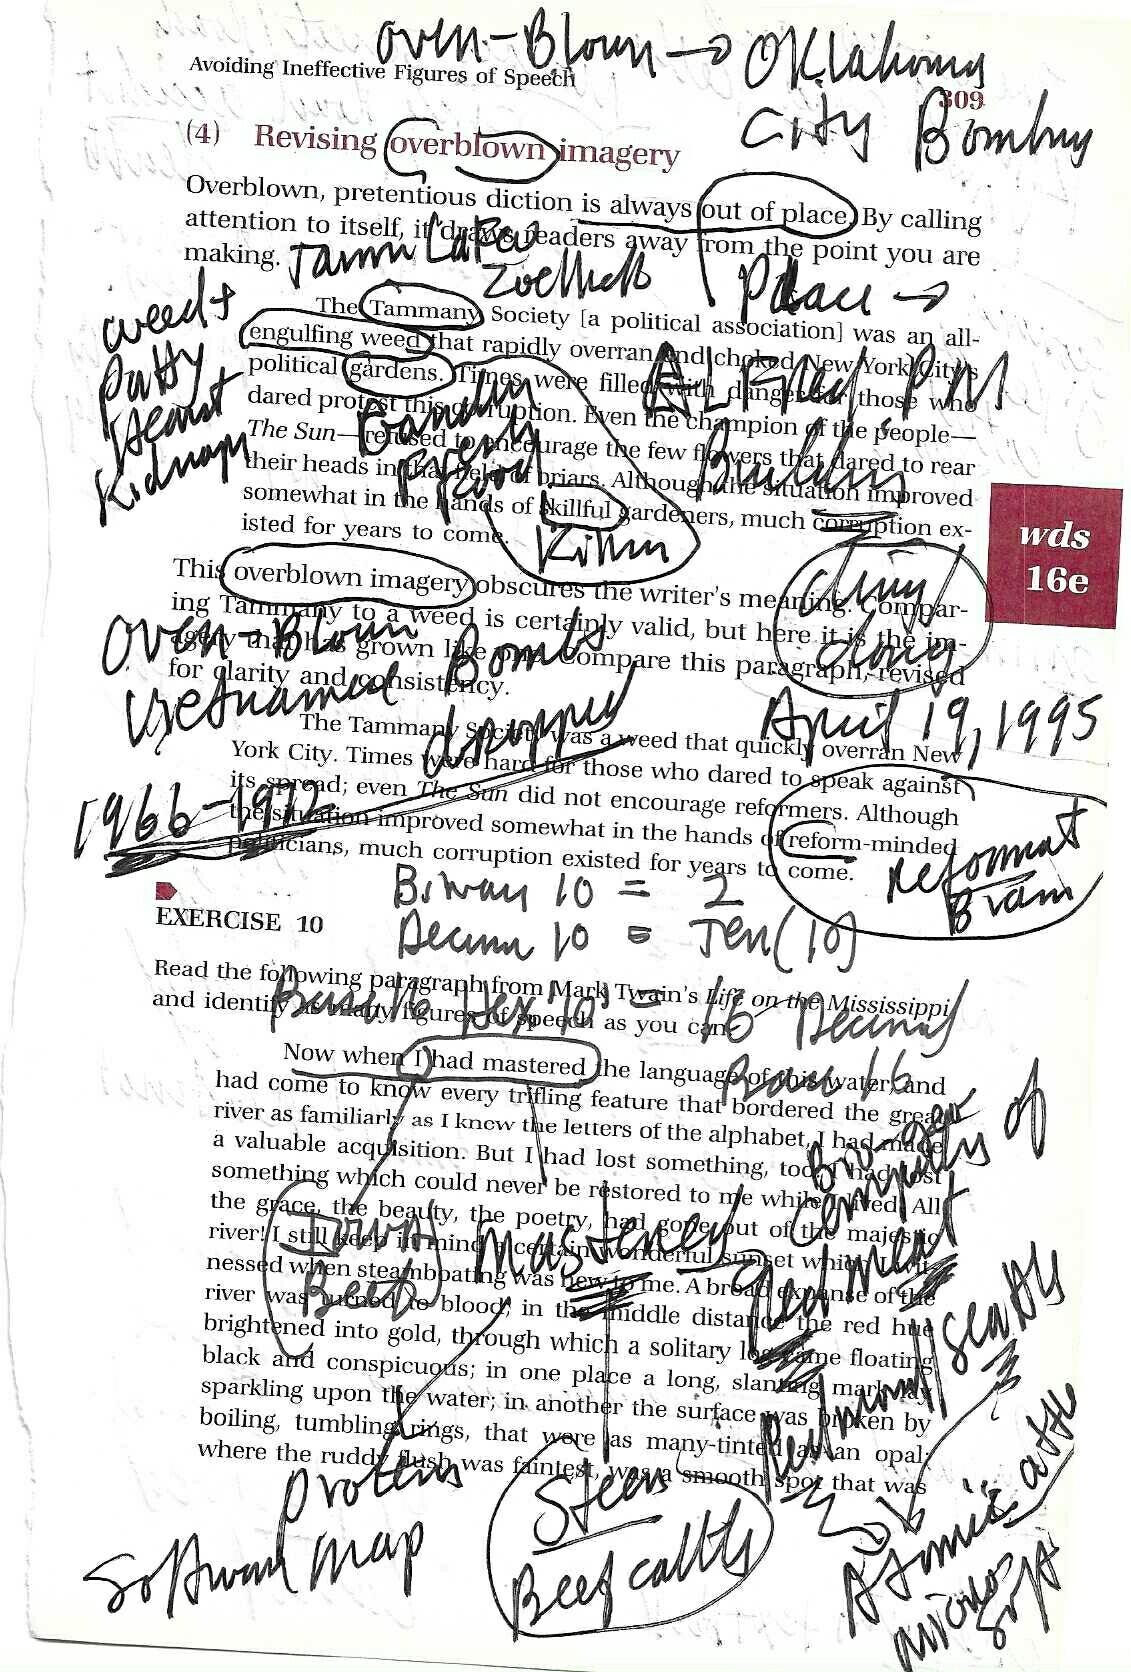 Oven-Blown → Oklahoma
Avoiding Ineffective Figures of Speech
309
City Bombing
(4) Revising overblown imagery
Overblown, pretentious diction is always out of place. By calling
attention to itself, it draws readers away from the point you are
making.
Place →
weed +
The Tammany Society [a political association] was an all-
engulfing weed that rapidly overran and choked New York City's
Patty
political gardens. Times were filled with danger for those who
ALFRed PM
Hearst
dared protest this corruption. Even the champion of the people—
The Sun—refused to encourage the few flowers that dared to rear
Kidnap
Food
their heads in that field of briars. Although the situation improved
somewhat in the hands of skillful gardeners, much corruption ex-
isted for years to come.
wds
16e
This overblown imagery obscures the writer's meaning. Compar-
ing Tammany to a weed is certainly valid, but here it is the im-
ding
dong
Oven-Blown Bombs
agery that has grown like one. Compare this paragraph, revised
for clarity and consistency.
dropped
April 19, 1995
The Tammany Society was a weed that quickly overran New
York City. Times were hard for those who dared to speak against
its spread; even The Sun did not encourage reformers. Although
1966-1972
the situation improved somewhat in the hands of reform-minded
politicians, much corruption existed for years to come.
Reformat
Brain
Binary 10 = 2
EXERCISE 10
Decimal 10 = Ten (10)
Read the following paragraph from Mark Twain's Life on the Mississippi
and identify as many figures of speech as you can.
Base 16 Hex '10' = 16 Decimal
Base 16
Now when I had mastered the language of this water, and
had come to know every trifling feature that bordered the great
river as familiarly as I knew the letters of the alphabet, I had made
a valuable acquisition. But I had lost something, too. I had lost
something which could never be restored to me while I lived. All
the grace, the beauty, the poetry, had gone out of the majestic
river! I still keep in mind a certain wonderful sunset which I wit-
nessed when steamboating was new to me. A broad expanse of the
river was turned to blood; in the middle distance the red hue
brightened into gold, through which a solitary log came floating
black and conspicuous; in one place a long, slanting mark lay
sparkling upon the water; in another the surface was broken by
boiling, tumbling rings, that were as many-tinted as an opal;
where the ruddy flush was faintest, was a smooth spot that was
complexity of
Red meat
Beef
Seattle
Redmond
Proteins
Steers
Beef cattle
Software map
Atomic cattle
Microsoft